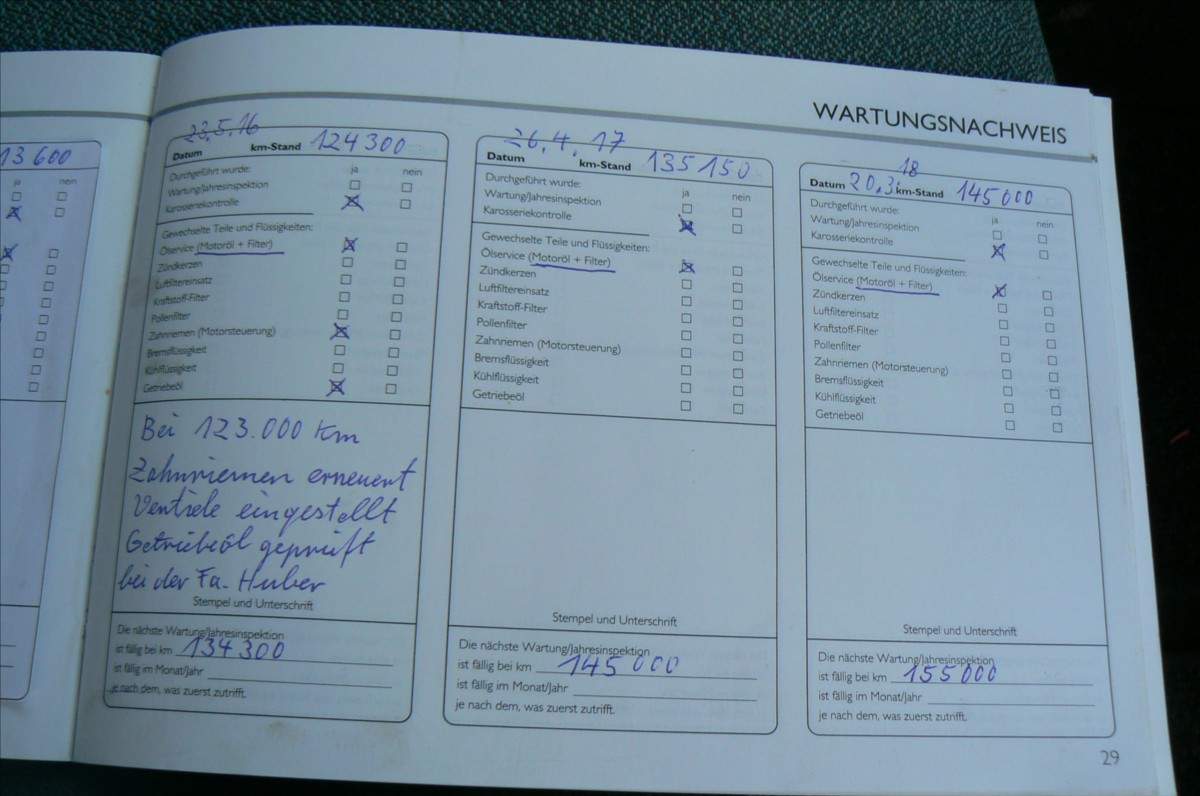 WARTUNGSNACHWEIS
13600
ja nein
23.5.16
Datum km-Stand 124300
Durchgeführt wurde: ja nein
Wartung/Jahresinspektion
Karosseriekontrolle
Gewechselte Teile und Flüssigkeiten:
Ölservice (Motoröl + Filter)
Zündkerzen
Luftfiltereinsatz
Kraftstoff-Filter
Pollenfilter
Zahnriemen (Motorsteuerung)
Bremsflüssigkeit
Kühlflüssigkeit
Getriebeöl
Bei 123.000 Km
Zahnriemen erneuert
Ventiele eingestellt
Getriebeöl geprüft
bei der Fa. Huber
Stempel und Unterschrift
Die nächste Wartung/Jahresinspektion
ist fällig bei km 134300
ist fällig im Monat/Jahr
je nach dem, was zuerst zutrifft.
26.4.17
Datum km-Stand 135150
Durchgeführt wurde: ja nein
Wartung/Jahresinspektion
Karosseriekontrolle
Gewechselte Teile und Flüssigkeiten:
Ölservice (Motoröl + Filter)
Zündkerzen
Luftfiltereinsatz
Kraftstoff-Filter
Pollenfilter
Zahnriemen (Motorsteuerung)
Bremsflüssigkeit
Kühlflüssigkeit
Getriebeöl
Stempel und Unterschrift
Die nächste Wartung/Jahresinspektion
ist fällig bei km 145000
ist fällig im Monat/Jahr
je nach dem, was zuerst zutrifft.
18
Datum 20.3. km-Stand 145000
Durchgeführt wurde: ja nein
Wartung/Jahresinspektion
Karosseriekontrolle
Gewechselte Teile und Flüssigkeiten:
Ölservice (Motoröl + Filter)
Zündkerzen
Luftfiltereinsatz
Kraftstoff-Filter
Pollenfilter
Zahnriemen (Motorsteuerung)
Bremsflüssigkeit
Kühlflüssigkeit
Getriebeöl
Stempel und Unterschrift
Die nächste Wartung/Jahresinspektion
ist fällig bei km 155000
ist fällig im Monat/Jahr
je nach dem, was zuerst zutrifft.
29